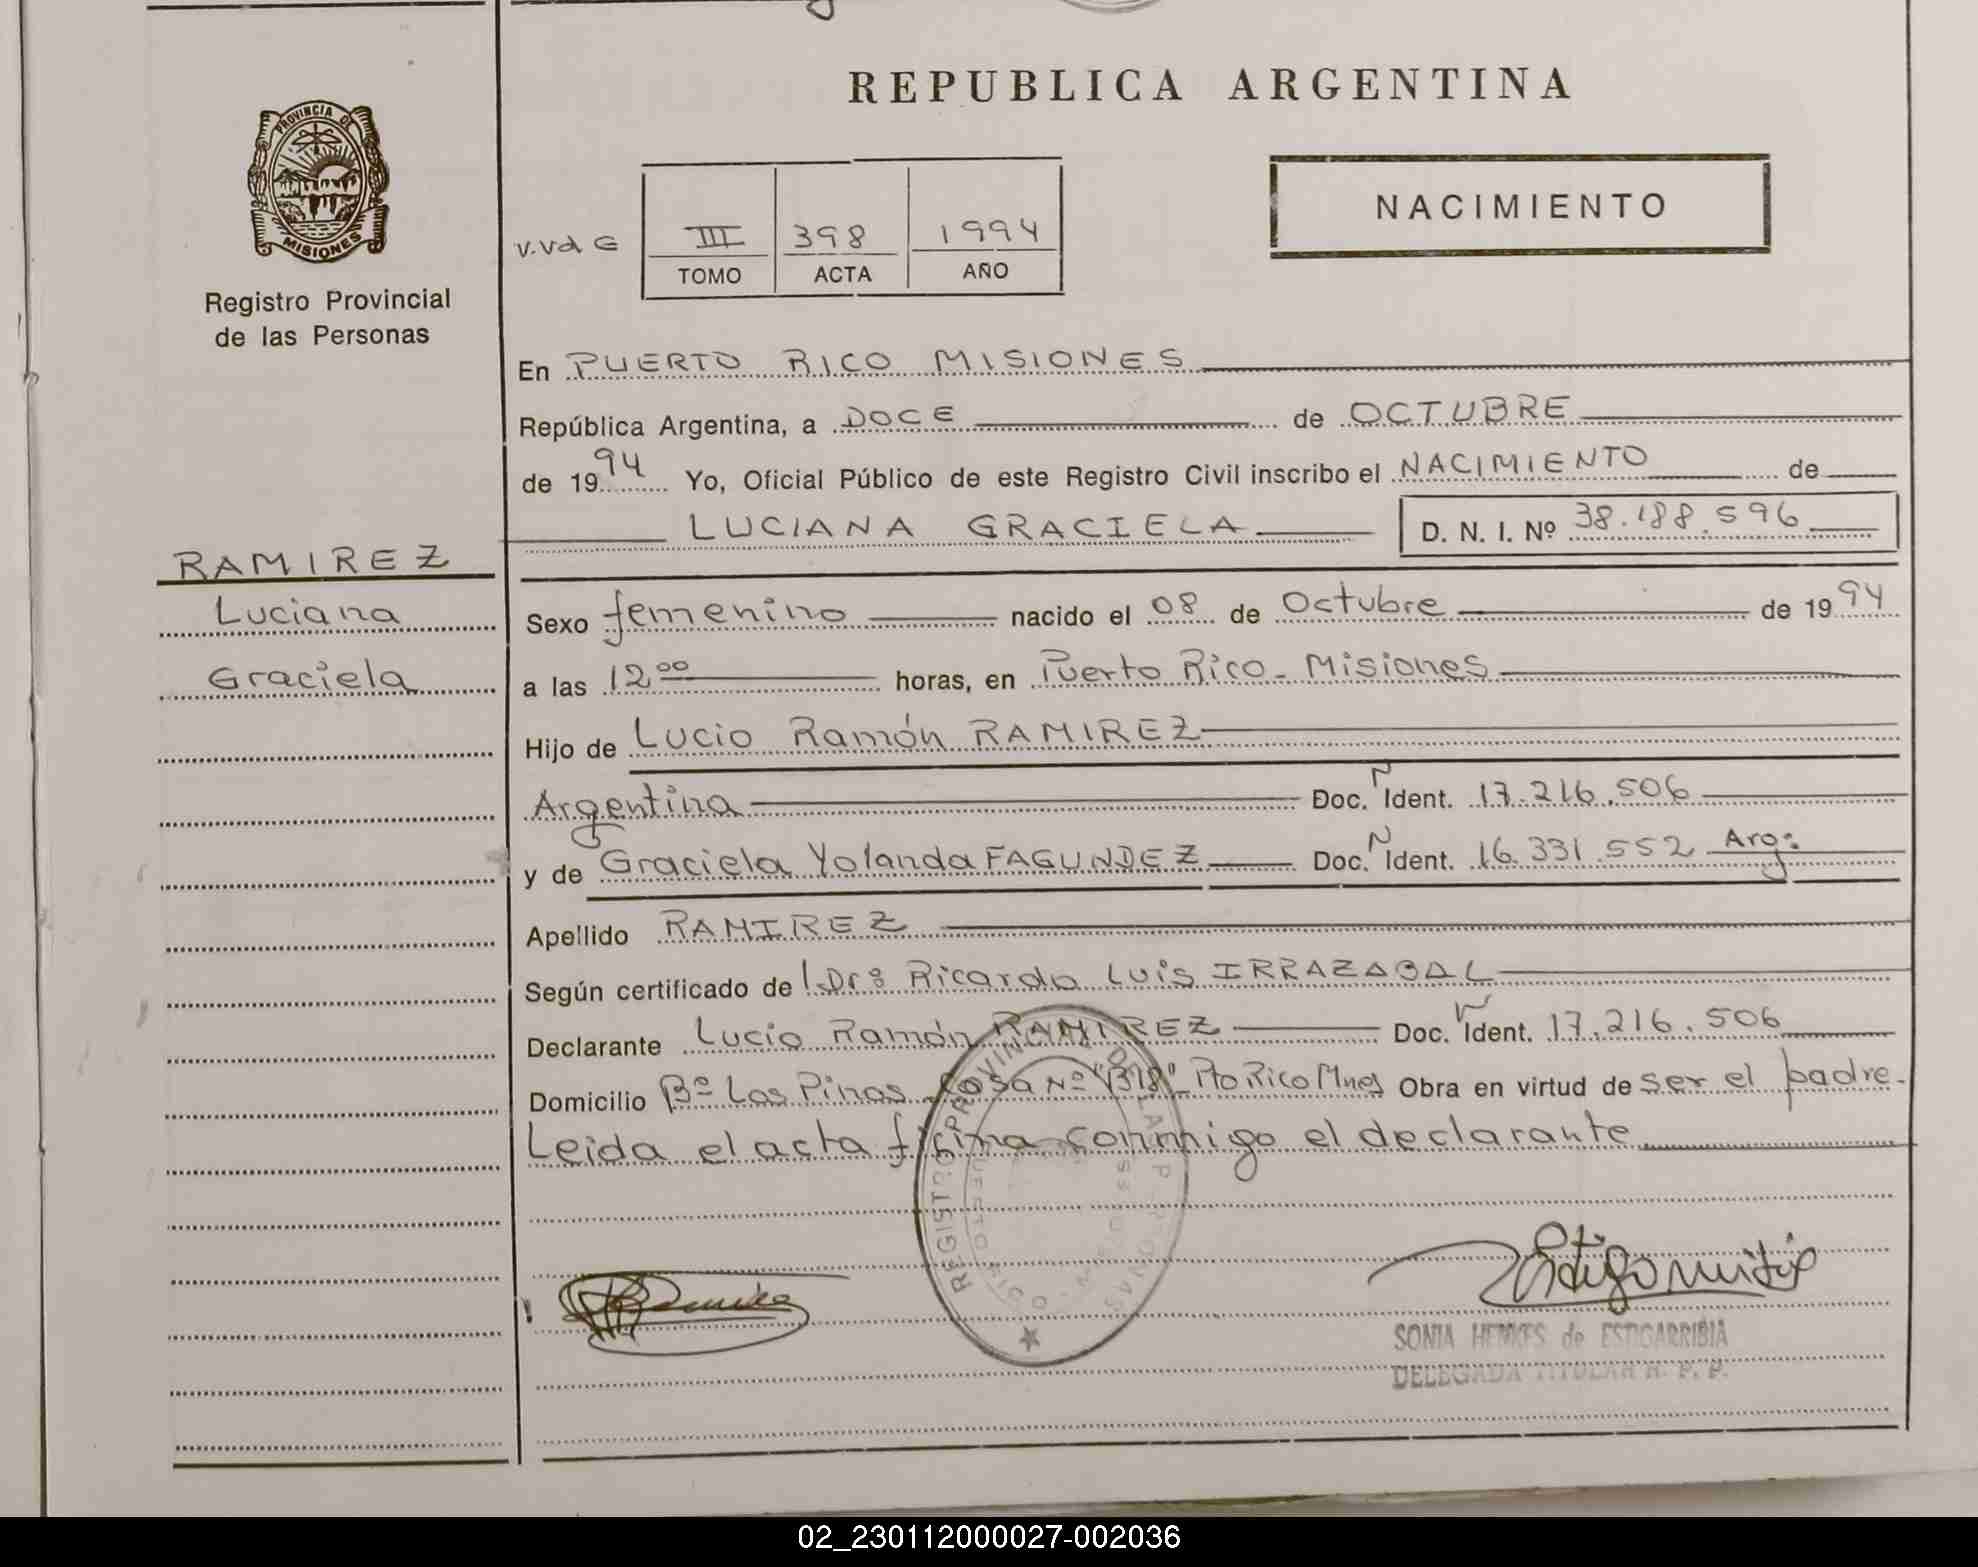 REPUBLICA ARGENTINA
PROVINCIA DE
MISIONES
Registro Provincial
de las Personas
NACIMIENTO
V.Vd G
III 398 1994
TOMO ACTA AÑO
En PUERTO RICO MISIONES
República Argentina, a DOCE de OCTUBRE
de 1994 Yo, Oficial Público de este Registro Civil inscribo el NACIMIENTO de
LUCIANA GRACIELA D. N. I. Nº 38.188.596
RAMIREZ
Luciana
Graciela
Sexo femenino nacido el 08 de Octubre de 1994
a las 12 00 horas, en Puerto Rico - Misiones
Hijo de Lucio Ramón RAMIREZ
Argentina Doc. N Ident. 17.216.506
y de Graciela Yolanda FAGUNDEZ Doc. N Ident. 16.331.552 Arg:
Apellido RAMIREZ
Según certificado de Dr: Ricardo Luis IRRAZABAL
Declarante Lucio Ramón RAMIREZ Doc. N Ident. 17.216.506
Domicilio Bº Los Pinos Casa Nº "B18" Pto Rico Mnes Obra en virtud de ser el padre.
Leida el acta firma conmigo el declarante
REGISTRO PROVINCIAL DE LAS PERSONAS
SONIA HENKES de ESTIGARRIBIA
DELEGADA TITULAR R. P. P.
02_230112000027-002036